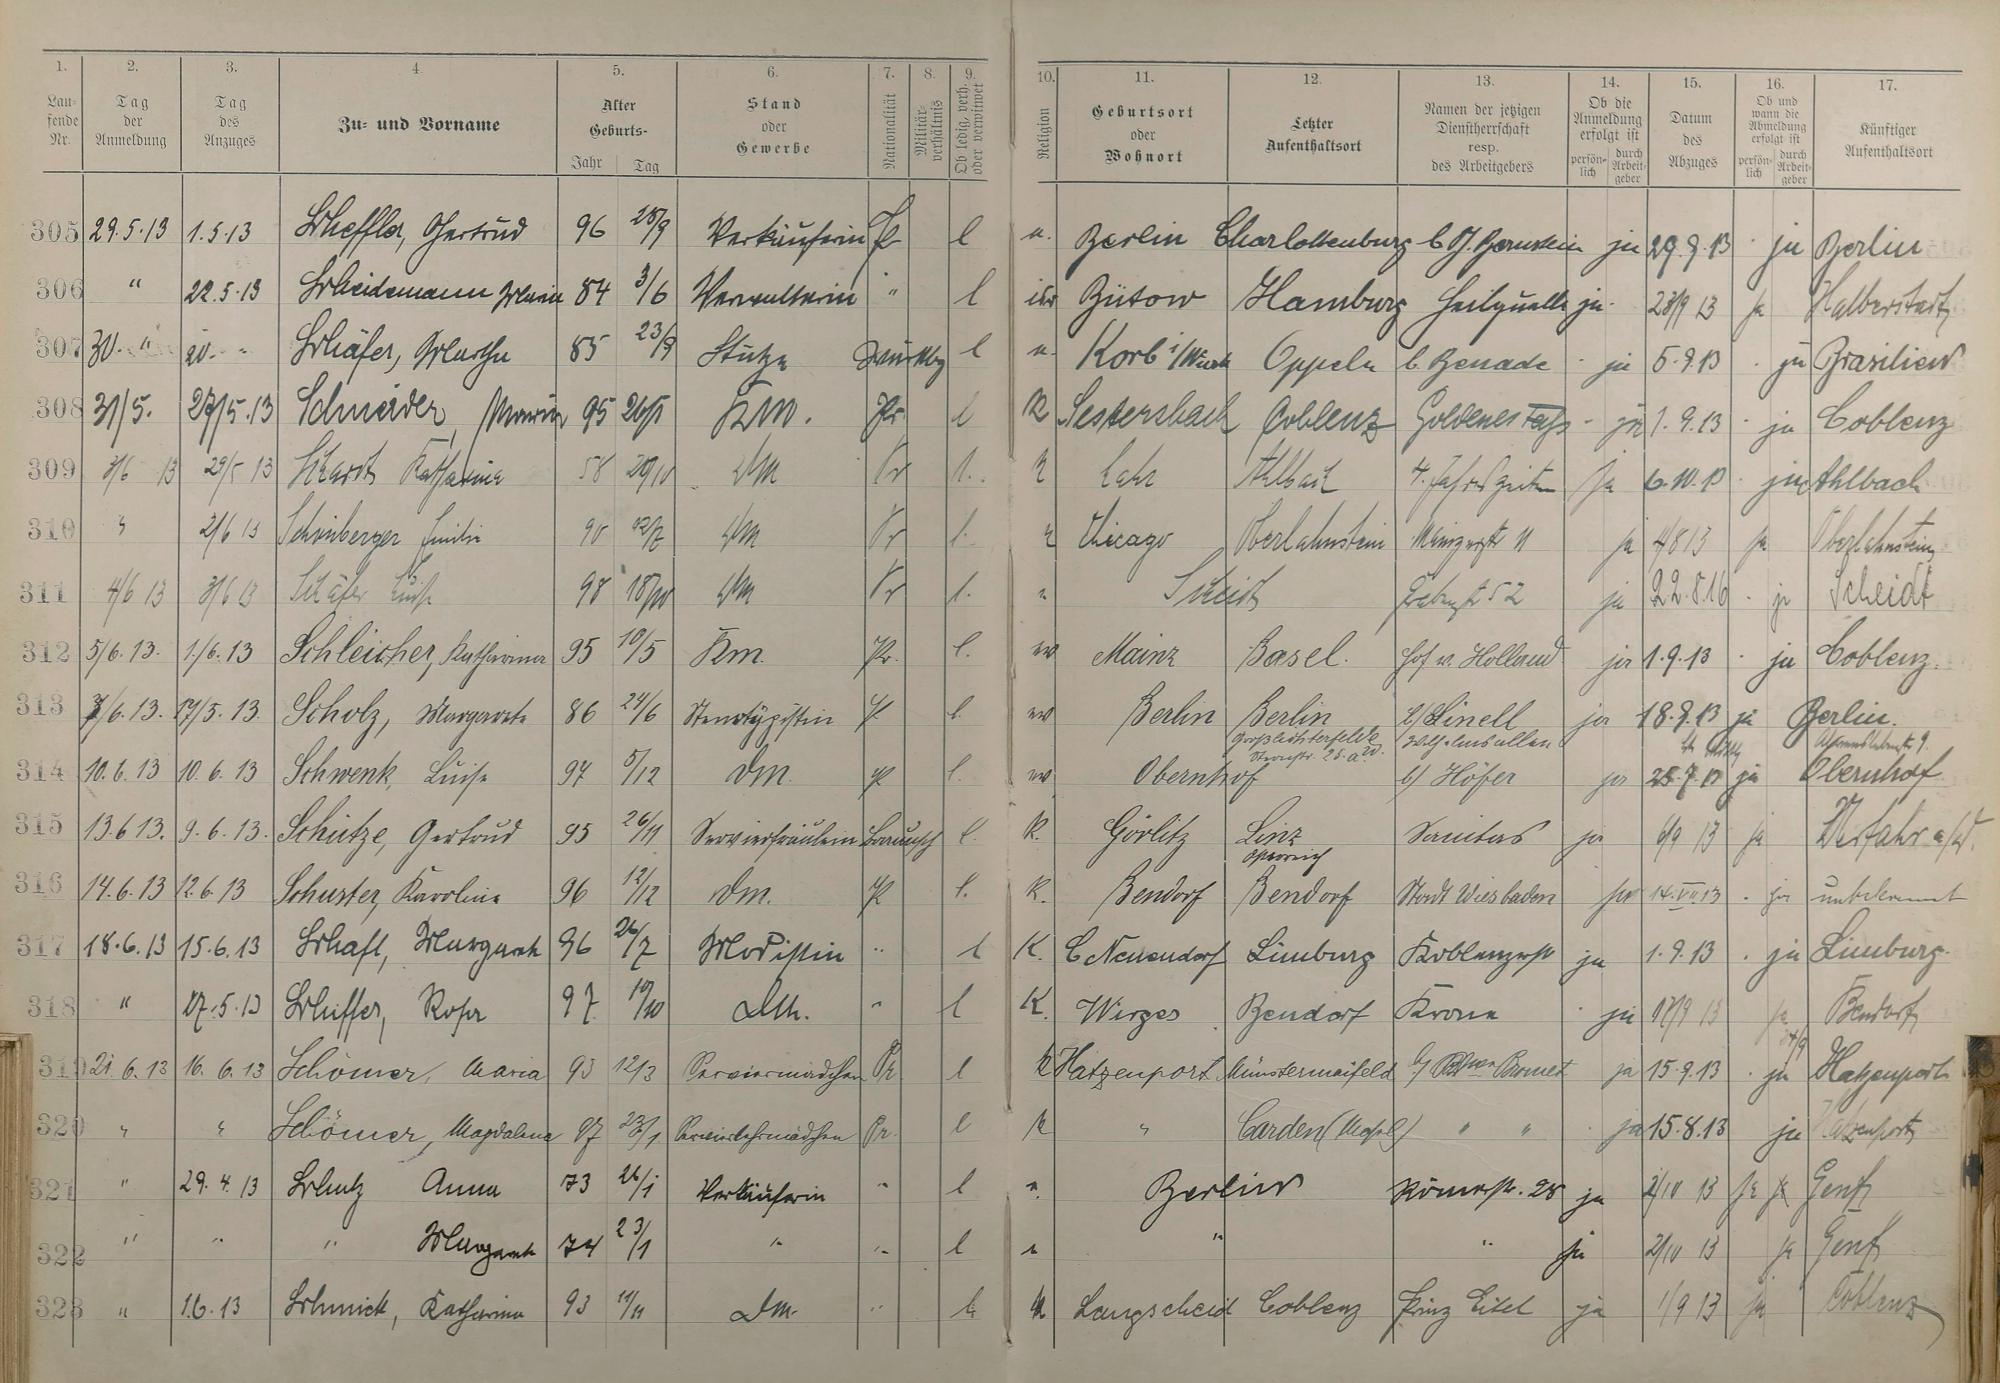 1. 2. 3. 4. 5. 6. 7. 8. 9. 10. 11. 12. 13. 14. 15. 16. 17.
Laufende Nr. Tag der Anmeldung Tag des Anzuges Zu- und Vorname Alter Geburts- Jahr Tag Stand oder Gewerbe Nationalität Militärverhältnis Ob ledig, verh. oder verwitwet Religion Geburtsort oder Wohnort Letzter Aufenthaltsort Namen der jetzigen Dienstherrschaft resp. des Arbeitgebers Ob die Anmeldung erfolgt ist persönlich durch Arbeitgeber Datum des Abzuges Ob und wann die Abmeldung erfolgt ist persönlich durch Arbeitgeber Künftiger Aufenthaltsort
305 29.5.13 1.5.13 Scheffler, Gertrud 96 Verkäuferin Pr l Berlin Charlottenburg b/ Bernstein ja 29.9.13 ja Berlin
306 " 22.5.13 Scheidemann 84 3/6 Verwalterin " l isr Bütow Hamburg Heilquelle ja 23/9 13 ja Halberstadt
307 30. " 20. " Schäfer, Martha 85 23/9 Stütze Württbg l Korb i/Württ Oppeln b. Benade ja 5.9.13 ja Brasilien
308 31/5. 27/5.13 Schneider, Maria 95 26/1 Km. Pr. l K Sestersbach Coblenz Goldenes Faß ja 1.9.13 ja Coblenz
309 3/6 13 29/5 13 Katharina 58 20/10 DM Pr l. K Lahr Ahlbach 4 Jahreszeiten ja 6.10.13 ja Ahlbach
310 " 2/6 13 Schönberger Emilie 90 DM Pr l. Chicago Oberlahnstein Mainzerstr 11 ja 4/8 13 ja Oberlahnstein
311 4/6 13 3/6 13 Schäfer Luise 98 18/10 DM Pr l. Scheidt Grabenstr 52 ja 22.8.16 ja Scheidt
312 5/6.13. 1./6.13 Schleicher, Katharina 95 10/5 Km. Pr. l. ev Mainz Basel. Hof v. Holland ja 1.9.13 ja Coblenz.
313 7/6.13. 17/5.13. Scholz, Margarete 86 24/6 Stenotypistin Pr l. ev Berlin Berlin b/ Linell ja 18.9.13 ja Berlin.
Großlichterfelde Wilhelmsallee
Sternstr. 25.a
314 10.6.13 10.6.13 Schwenk, Luise 97 5/12 DM. Pr l. ev Obernhof b/ Höfer ja ja Obernhof
315 13.6 13. 9.6.13. Schütze, Gertrud 95 26/11 Servierfräulein Braunsch l. K. Görlitz Linz Sanitas ja 6/9 13 ja Urfahr a/D.
Österreich
316 14.6.13 12.6.13 Schuster, Karoline 96 12/12 DM. Pr l. K. Bendorf Bendorf Stadt Wiesbaden ja 14.VII 13 ja unbekannt
317 18.6.13 15.6.13 Margareth 96 26/7 Modistin " l K. C Neuendorf Limburg Koblenzerstr ja 1.9.13 ja Limburg.
318 " 27.5.13 Rosa 97. 19/10 DM. " l K. Wirges Bendorf Krone ja 17/9 13 ja Bendorf
319 21.6.13 16.6.13 Schömer, Maria 93 12/3 Serviermädchen Pr. l K Hatzenport Münstermaifeld ja 15.9.13 ja Hatzenport
320 " " Schömer, Magdalena 97 23/1 Servierlehrmädchen Pr. l K " Carden (Mosel) " " ja 15.8.13 ja Hatzenport
321 " 29.4.13 Schulz Anna 73 26/1 Verkäuferin " l Berlin Römerstr. 28 ja 2/10 13 ja Genf
322 " " " Margareth 74 23/1 " " l " " ja 2/10 13 ja Genf
323 " 1.6.13 Schmick, Katharina 93 11/11 DM. " l. Langscheid Coblenz Prinz Eitel ja 1/9 13 ja Coblenz